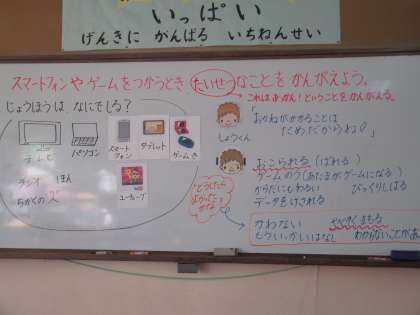 いっぱい
げんきに がんばる いちねんせい
スマートフォンや ゲームを つかうとき たいせつなことを かんがえよう。
これはあっかん!ということをかんがえる。
じょうほうは なにでしる?
テレビ
パソコン
スマートフォン
タブレット
ゲームき
ラジオ
ほん
ちかくの人
ユーチューブ
しょうくん
「おかねがかかることは
だめだからね」
おこられる(ばれる)
ゲームのう(あたまがゲームになる)
からだにもわるい
びっくりしはる
データをけされる
かわない
やくそくまもる
もういっかいはなし
わからないことがあ